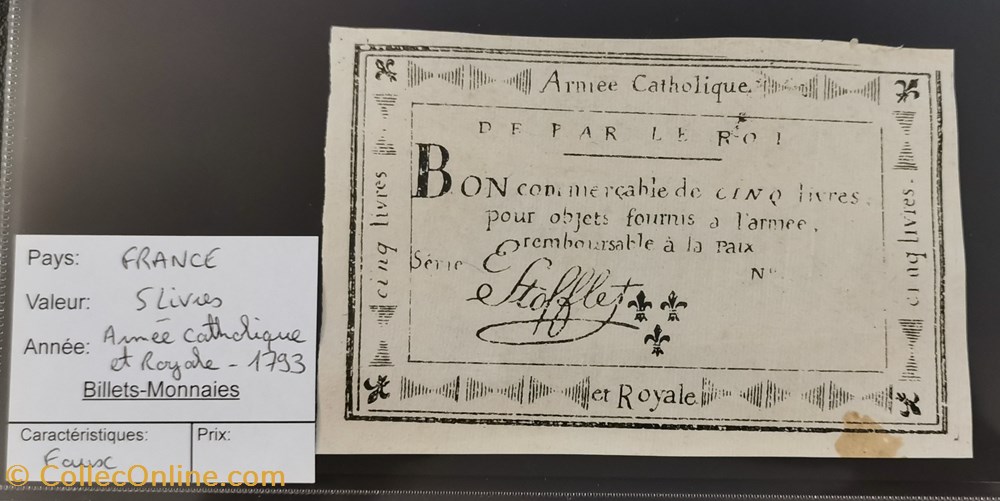 Armée Catholique
DE PAR LE ROI
BON commerçable de CINQ livres.
pour objets fournis a l'armée.
remboursable à la Paix
Série E N°
Stofflet
et Royale
cinq livres
cinq livres.
Pays: FRANCE
Valeur: 5 Livres
Année: Armée Catholique
et Royale - 1793
Billets-Monnaies
Caractéristiques: Prix:
Faux
© CollecOnline.com